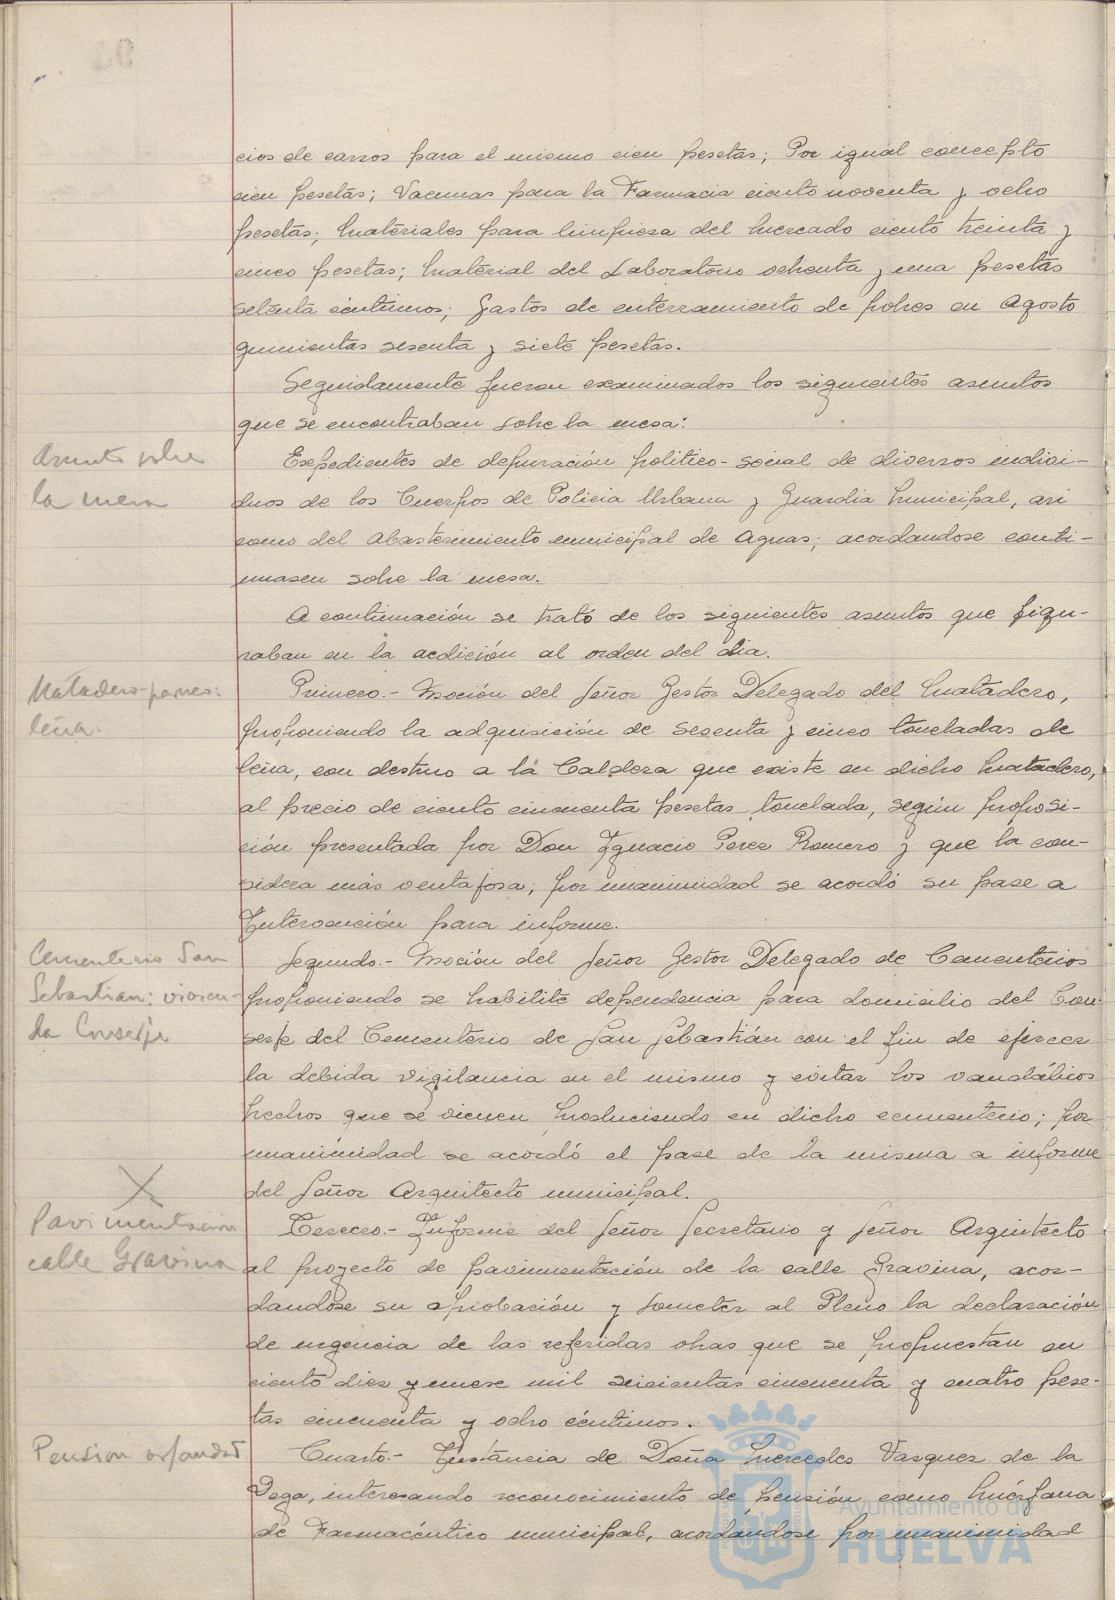 cios de carros para el mismo cien pesetas; Por igual concepto
cien pesetas; Vacunas para la Farmacia ciento noventa y ocho
pesetas; Materiales para limpieza del Mercado ciento treinta y
cinco pesetas; Material del Laboratorio ochenta y una pesetas
setenta céntimos; Gastos de enterramiento de pobres en Agosto
quinientas sesenta y siete pesetas.
Seguidamente fueron examinados los siguientes asuntos
que se encontraban sobre la mesa:
Asunto sobre
la mesa
Expedientes de depuración politico-social de diversos indivi-
duos de los Cuerpos de Policia Urbana y Guardia Municipal, asi
como del Abastecimiento municipal de Aguas; acordandose conti-
nuasen sobre la mesa.
A continuación se trató de los siguientes asuntos que figu-
raban en la adición al orden del dia.
Matadero
leña.
Primero.- Moción del Señor Gestor Delegado del Matadero,
proponiendo la adquisición de sesenta y cinco toneladas de
leña, con destino a la Caldera que existe en dicho Matadero,
al precio de ciento cincuenta pesetas tonelada, según proposi-
ción presentada por Don Ignacio Perez Romero y que la con-
sidera más ventajosa; por unanimidad se acordó su pase a
Intervención para informe.
Cementerio San
Sebastian; vivien-
da Conserje
Segundo.- Moción del Señor Gestor Delegado de Cementerios
proponiendo se habilite dependencia para domicilio del Con-
serje del Cementerio de San Sebastián con el fin de ejercer
la debida vigilancia en el mismo y evitar los vandálicos
hechos que se vienen produciendo en dicho cementerio; por
unanimidad se acordó el pase de la misma a informe
del Señor Arquitecto municipal.
Pavimentacion
calle Gravina
Tercero.- Informe del Señor Secretario y Señor Arquitecto
al proyecto de pavimentación de la calle Gravina, acor-
dandose su aprobación y someter al Pleno la declaración
de urgencia de las referidas obras que se presupuestan en
ciento diez y nueve mil seiscientas cincuenta y cuatro pese-
tas cincuenta y ocho céntimos.
Pension orfandad
Cuarto.- Instáncia de Doña Mercedes Vazquez de la
Vega, interesando reconocimiento de pensión como huérfana
de Farmacéutico municipal, acordándose por unanimidad
Ayuntamiento de
HUELVA